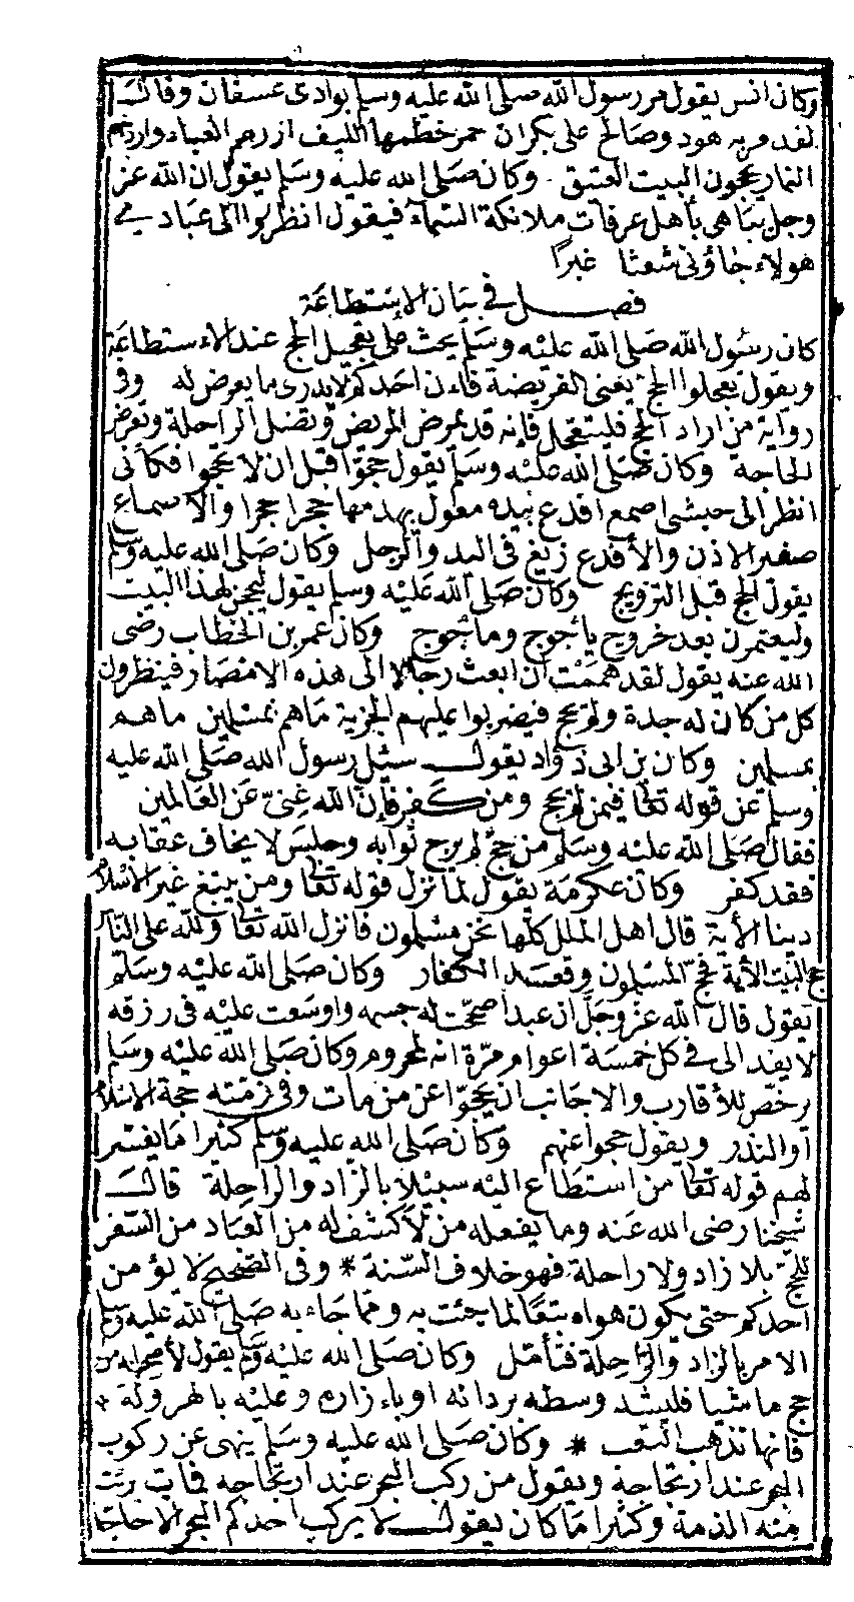 وكان انس يقول مر رسول الله صلى الله عليه وسلم بوادى عسفان وقال
لقد مر به هود وصالح على بكران حمر خطمها الليف ازرهم العباء وارديتهم
النمار يحجون البيت العتيق . وكان صلى الله عليه وسلم يقول ان الله عز
وجل يباهى بأهل عرفات ملائكة السماء فيقول انظروا الى عبادى
هولاء جاؤنى شعثا غبرا
فصل في بيان الاستطاعة
كان رسول الله صلى الله عليه وسلم يحث على تعجيل الحج عند الاستطاعة
ويقول تعجلوا الحج يعنى الفريضة فاءن احدكم لا يدرى ما يعرض له وفى
رواية من اراد الحج فليتعجل فإنه قد يمرض المريض وتضل الراحلة وتعرض
الحاجة وكان صلى الله عليه وسلم يقول حجوا قبل ان لا تحجوا فكأنى
انظر الى حبشى اصمع افدع بيده معول يهدمها حجرا حجرا والاسماع
صغير الاذن والأفدع زيغ فى اليد والرجل وكان صلى الله عليه وسلم
يقول الحج قبل التزويج وكان صلى الله عليه وسلم يقول ليحجن لهذا البيت
وليعتمرن بعد خروج يأجوج ومأجوج وكان عمر بن الخطاب رضى
الله عنه يقول لقد هممت ان ابعث رجالا الى هذه الامصار فينظرون
كل من كان له جدة ولم يحج فيضربوا عليهم الجزية ما هم بمسلمين ما هم
بمسلمين وكان بن ابى دؤاد يقول سئل رسول الله صلى الله عليه
وسلم عن قوله تعا فيمن لم يحج ومن كفر فإن الله غنى عن العالمين
فقال صلى الله عليه وسلم من حج لم يرج ثوابه وجلس لا يخاف عقابه
فقد كفر وكان عكرمة يقول لما نزل قوله تعا ومن يبتغ غير الاسلام
دينا الأية قال اهل الملل كلها نحن مسلمون فانزل الله تعا ولله على الناس
حج البيت الأية فحج المسلمون وقعد الكفار وكان صلى الله عليه وسلم
يقول قال الله عز وجل ان عبدا صححت له جسمه واوسعت عليه فى رزقه
لا يفد الى في كل خمسة اعوام مرة انه لمحروم وكان صلى الله عليه وسلم
يرخص للأقارب والاجانب ان يحجوا عن من مات وفى ذمته حجة الاسلام
أو النذر ويقول حجوا عنهم وكان صلى الله عليه وسلم كثيرا ما يفسر
لهم قوله تعا من استطاع اليه سبيلا بالزاد والراحلة قال
شيخنا رضى الله عنه وما يفعله من لا كشف له من العباد من السفر
للحج بلا زاد ولا راحلة فهو خلاف السنة * وفى الصحيح لا يؤمن
احدكم حتى يكون هواه تبعا لما جئت به ومما جاء به صلى الله عليه وسلم
الامر بالزاد والراحلة فتأمل وكان صلى الله عليه وسلم يقول لأصحابه من
حج ماشيا فليشد وسطه بردائه او باءزاره وعليه بالهرولة *
فانها تذهب التعب * وكان صلى الله عليه وسلم ينهى عن ركوب
البحر عند ارتجاجه ويقول من ركب البحر عند ارتجاجه فمات برئت
منه الذمة وكثيرا ما كان يقول لا يركب احدكم البحر الا حاجا